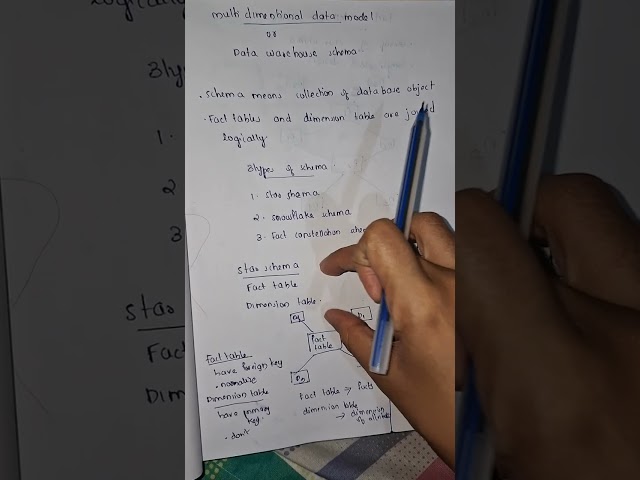 multi dimentional data model
or
Data warehouse schema
• Schema means collection of database object
• Fact tables and dimension table are joined
logically.
3types of shema
1. Star shama
2. snowflake schema
3. Fact constellation
Star schema
Fact table
Dimension table.
Fact
table
D1
Fact table
have foreign key
• normalize
Dimension table
have primary
key.
• don't
Fact table → facts
dimension table
→ dimension